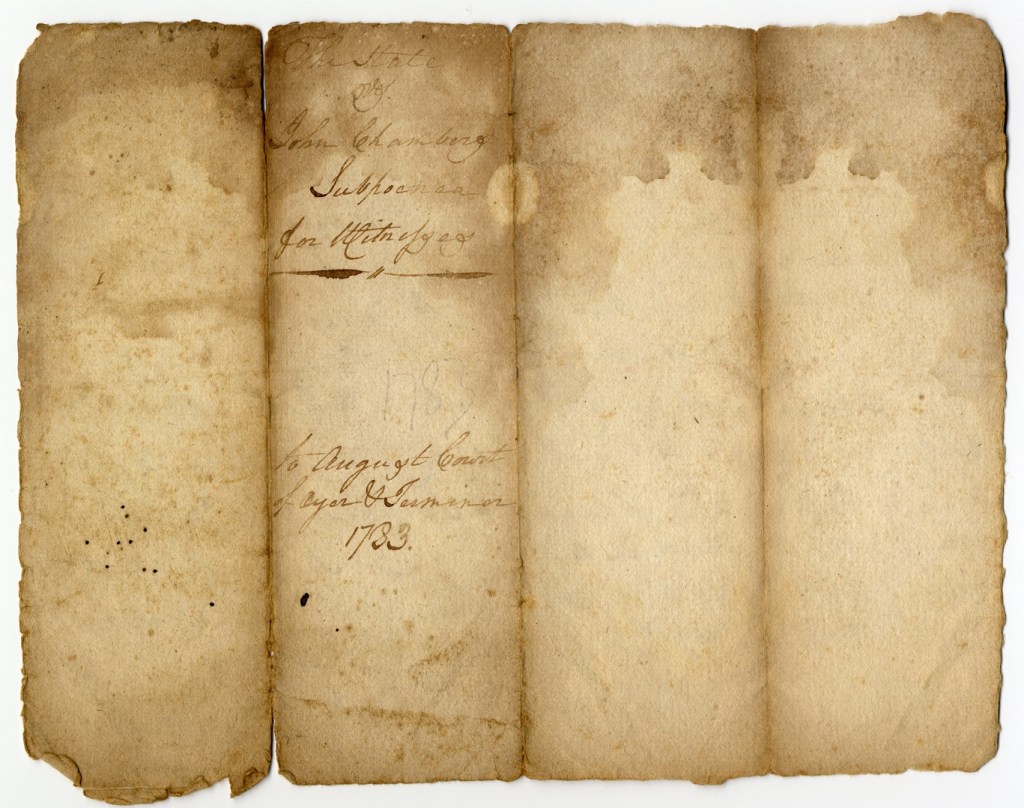 The State
vs.
John Chambers
Subpoenea
for Witnesses
1783
to August Court
of oyer & Terminor
1783.